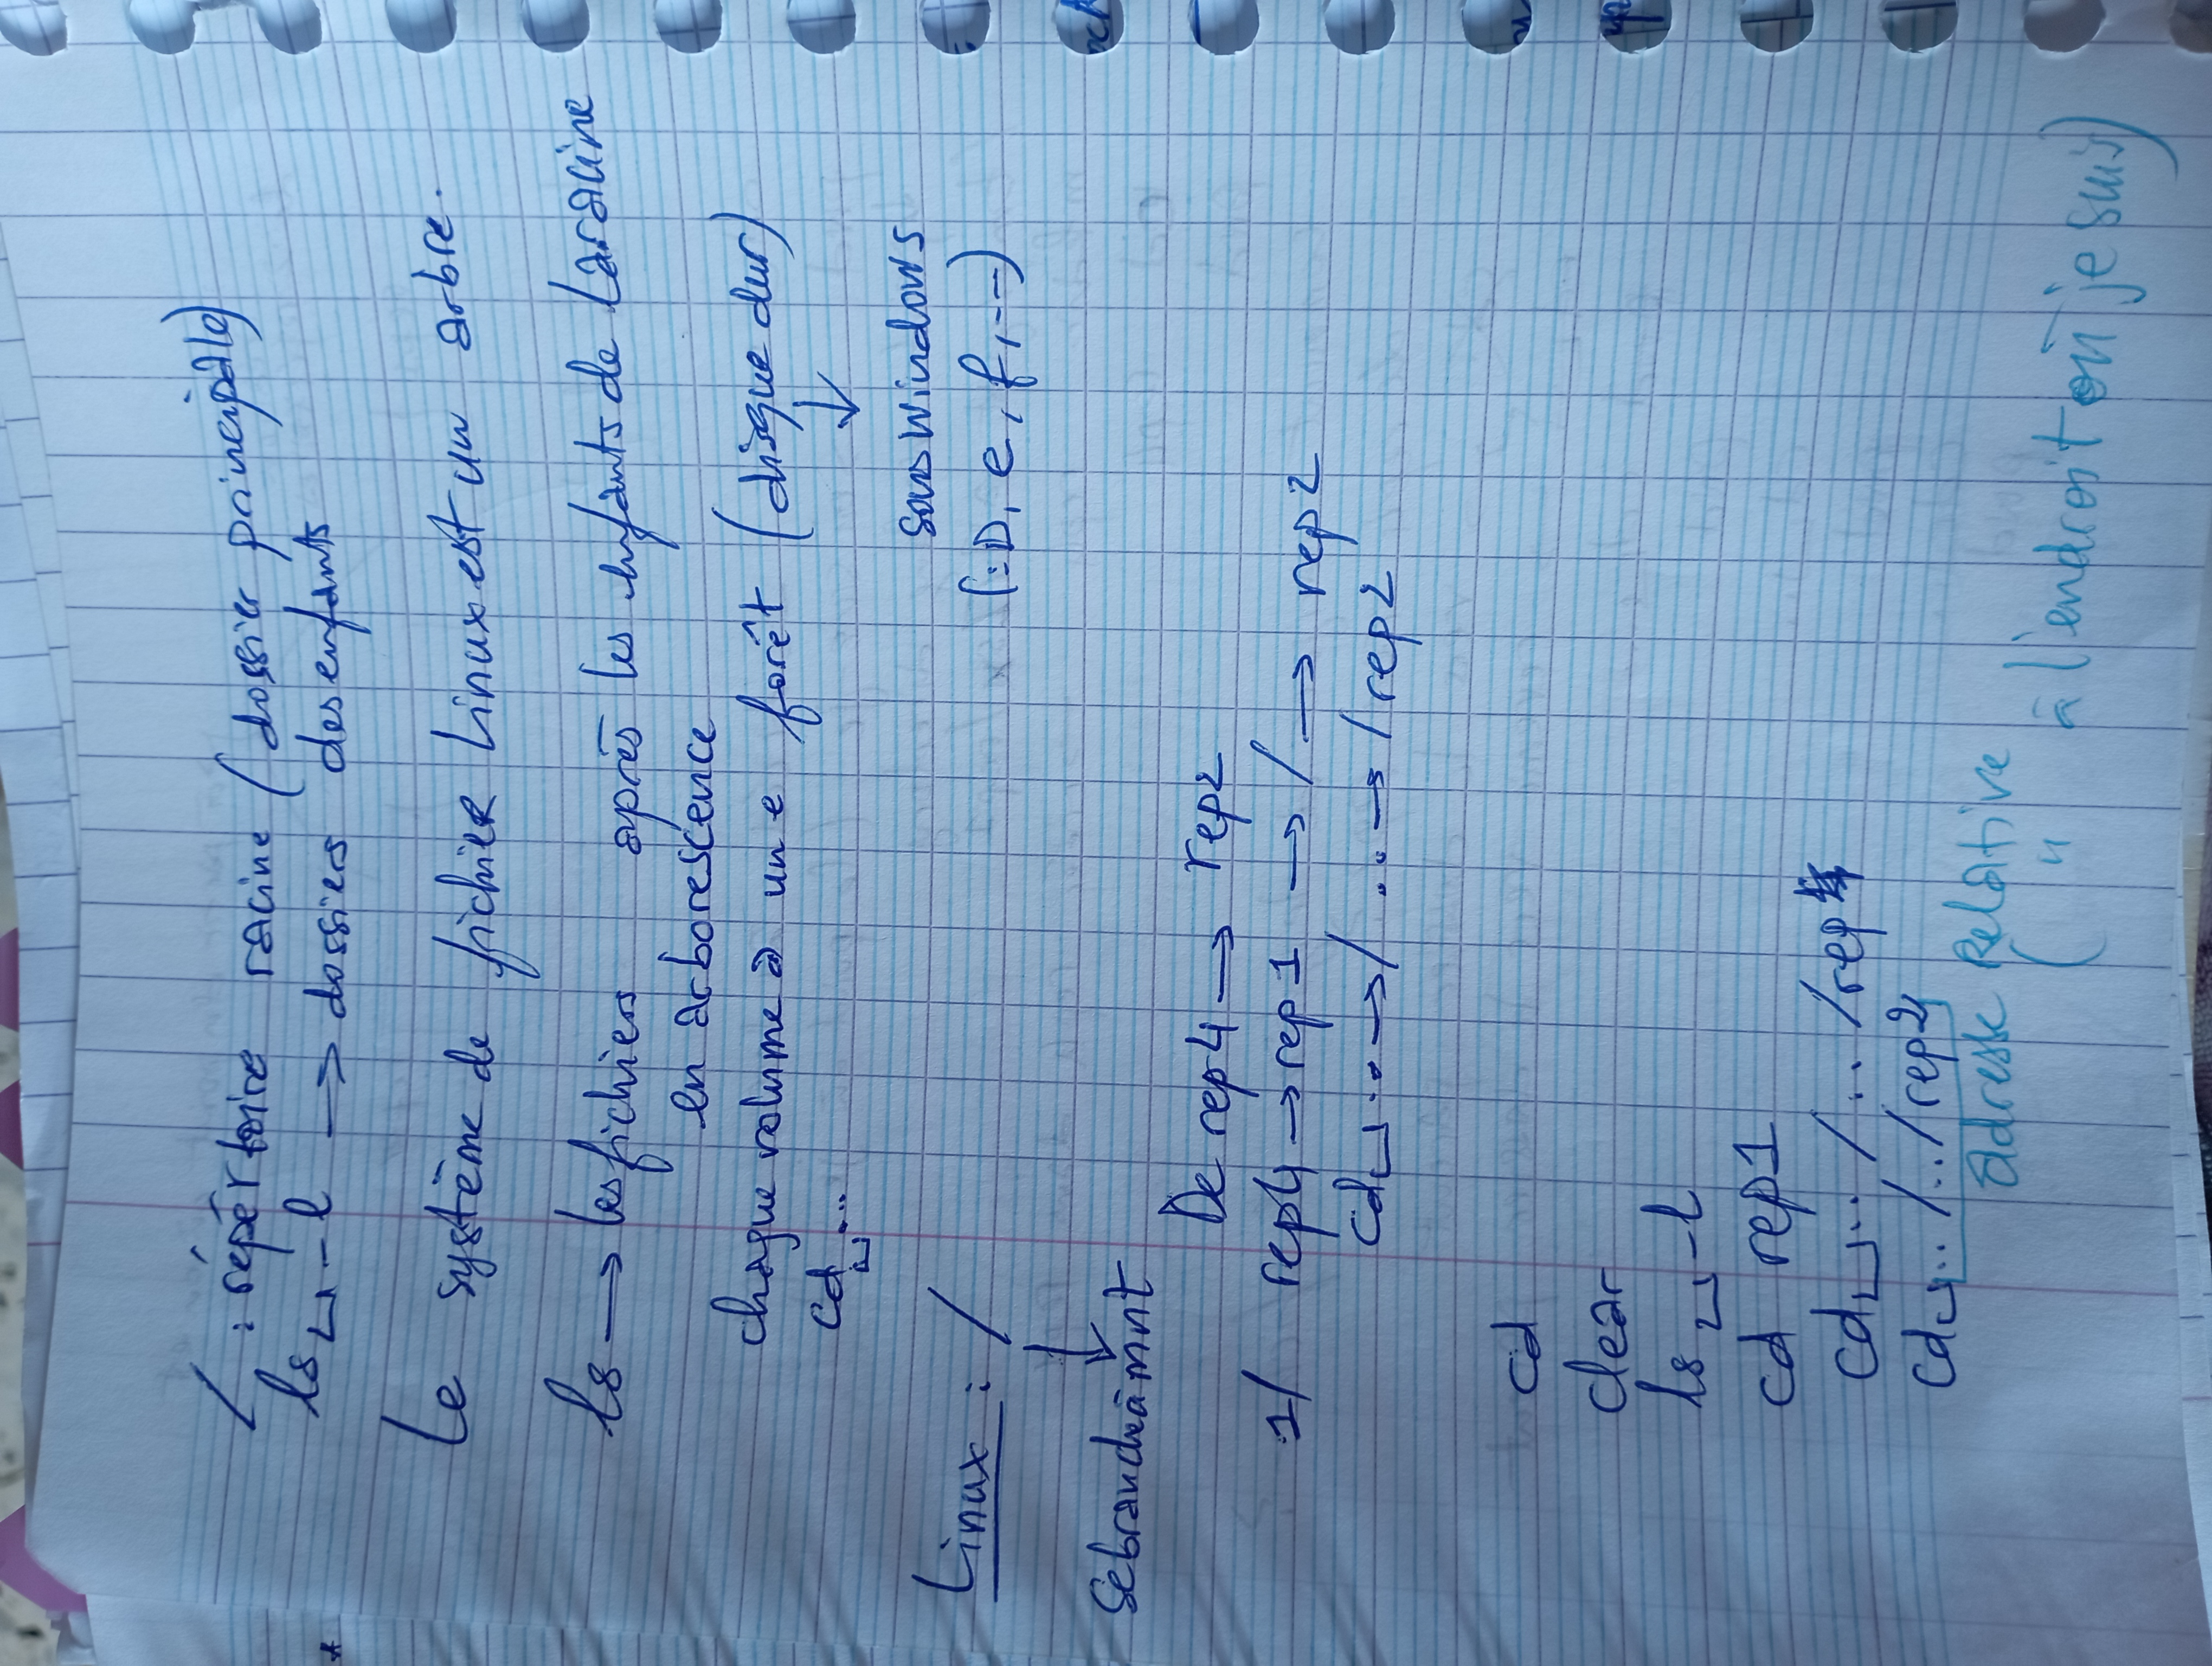 / : répertoire racine (dossier principale)
ls␣-l → dossiers des enfants
Le système de fichier Linux est un arbre.
ls → les fichiers après les enfants de la racine
en arborescence
chaque volume a une forêt (disque dur)
cd␣.. ↓
sous Windows
Linux : / (:D, e, f, --)
↓
Sebrandeàmnt
De rep4 → rep2
1/ rep4 → rep1 → / → rep2
cd␣.. → / .. → / rep2
cd
clear
ls␣-l
cd rep1
cd␣.. / .. /rep
cd␣.. / .. /rep2
adresse Relative
( " à l'endroit où je suis)